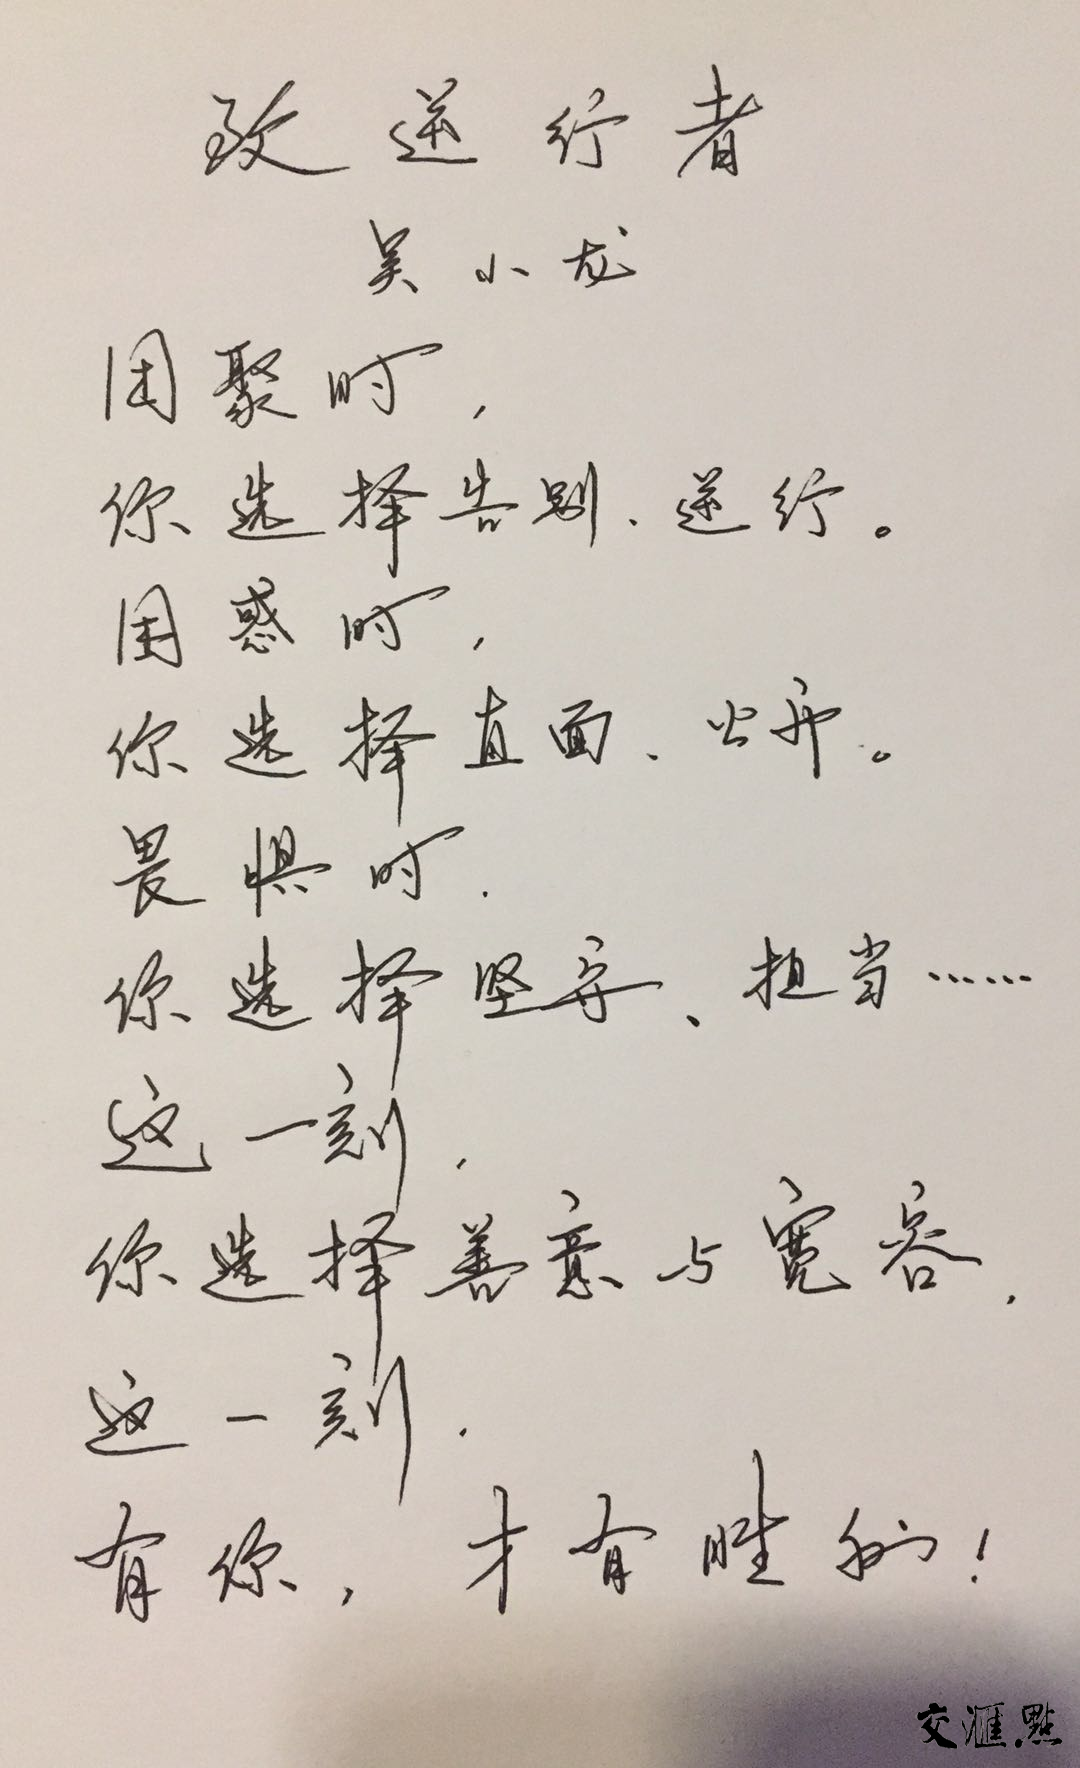 致逆行者
吴小龙
团聚时，
你选择告别、逆行。
困惑时，
你选择直面、公开。
畏惧时.
你选择坚守、担当……
这一刻，
你选择善意与宽容，
这一刻.
有你，才有胜利！
交滙點